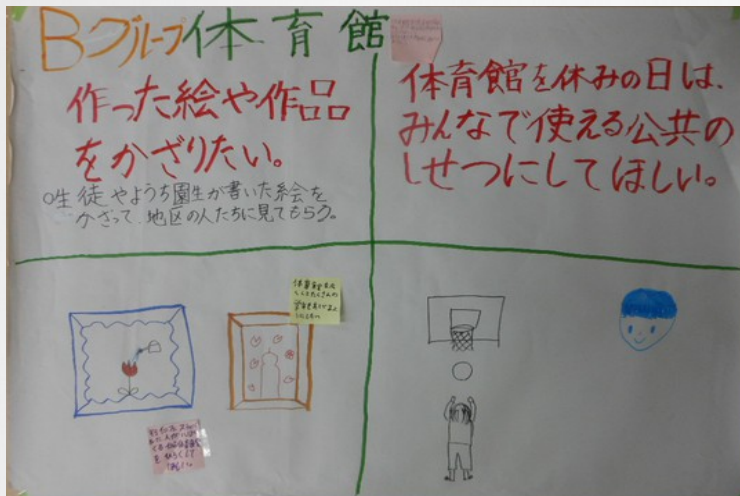 Bグループ体育館
作った絵や作品
をかざりたい。
○生徒やようち園生が書いた絵を
かざって、地区の人たちに見てもらう。
体育館を休みの日は、
みんなで使える公共の
しせつにしてほしい。